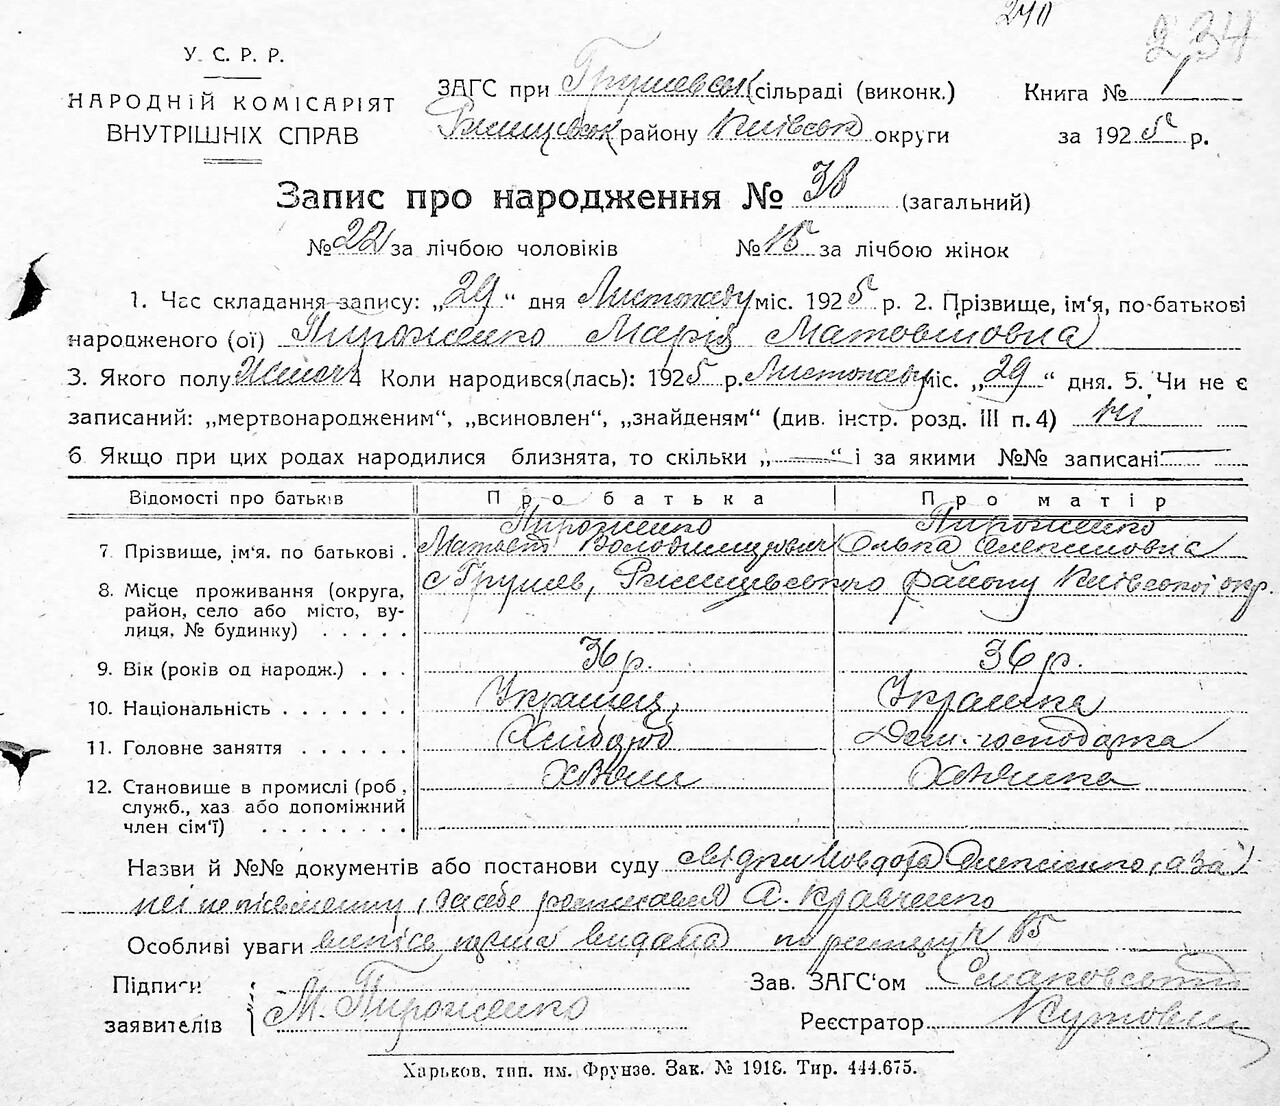 240
234
У. С. Р. Р.
НАРОДНІЙ КОМІСАРІЯТ
ВНУТРІШНІХ СПРАВ
ЗАГС при Грушевськ сільраді (виконк.)
Ржищівськ району Київськ округи
Книга № 1
за 1925 р.
Запис про народження № 38 (загальний)
№ 22 за лічбою чоловіків № 15 за лічбою жінок
1. Час складання запису: „29“ дня Листопаду міс. 1925 р. 2. Прізвище, ім'я, по-батькові
народженого (ої) Пироженко Марія Матовіївна
3. Якого полу Жіноч 4 Коли народився(лась): 1925 р. Листопаду міс. „29“ дня. 5. Чи не є
записаний: „мертвонародженим“, „всиновлен“, „знайденям“ (див. інстр. розд. III п. 4) ні
6 Якщо при цих родах народилися близнята, то скільки „—“ і за якими №№ записані —
Відомості про батьків Про батька Про матір
Пироженко Пироженко
7. Прізвище, ім'я. по батькові . Матвій Володимирович Олька Олексіївна
8. Місце проживання (округа, с Грушев, Ржищевського району Київської окр.
район, село або місто, ву-
лиця, № будинку) . . . . .
9. Вік (років од народж.) . . . 36 р. 36 р.
10. Національність . . . . . . . Українец Українка
11. Головне заняття . . . . . . Хлібороб Дом. господарка
12. Становище в промислі (роб., Хазяїн Хазяйка
служб., хаз або допоміжний
член сім'ї) . . . . . . . .
Назви й №№ документів або постанови суду свідки Олексієнко, а за
неї неписьменну, за себе розписався А. Кравченко
Особливі уваги випись видана по реєстру № 85
Підписи
заявителів М. Пироженко
Зав. ЗАГС'ом
Реєстратор
Харьков, тип. им. Фрунзе. Зак. № 1918. Тир. 444.675.